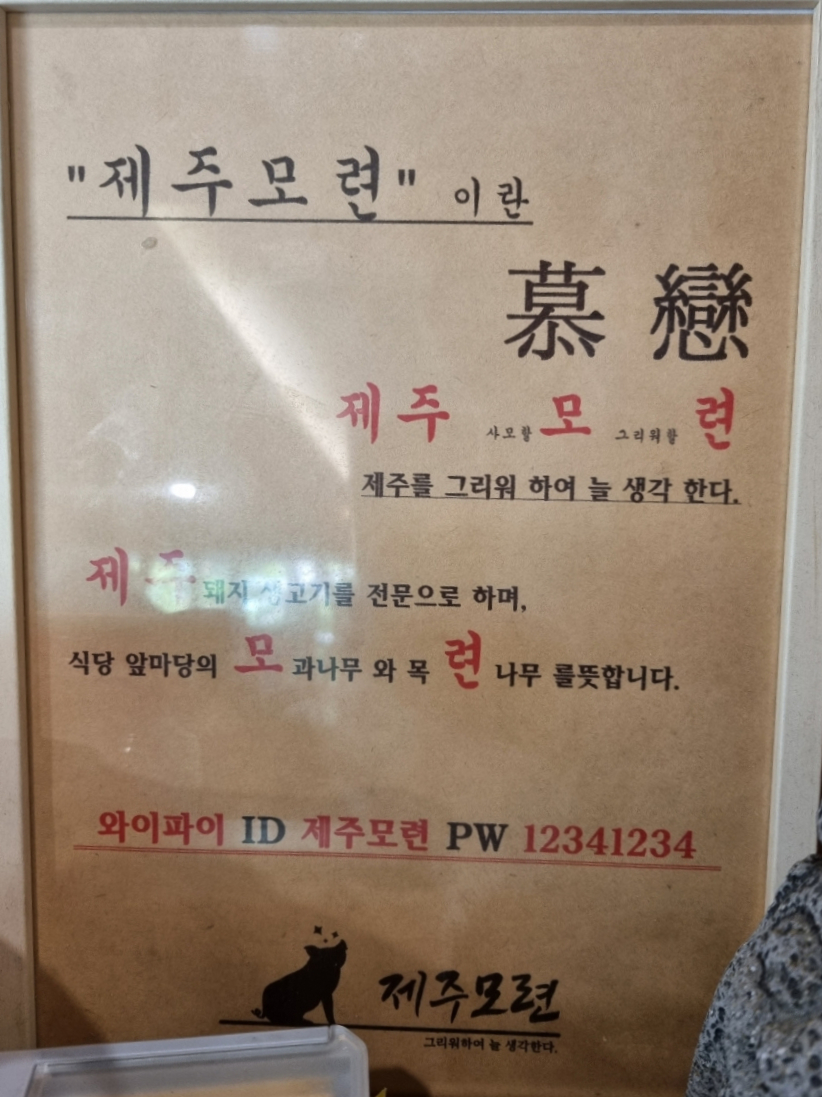 "제주모련" 이란
慕 戀
제주 사모할 모 그리워할 련
제주를 그리워 하여 늘 생각 한다.
제주 돼지 생고기를 전문으로 하며,
식당 앞마당의 모과나무 와 목련 나무 를뜻합니다.
와이파이 ID 제주모련 PW 12341234
제주모련
그리워하여 늘 생각한다.